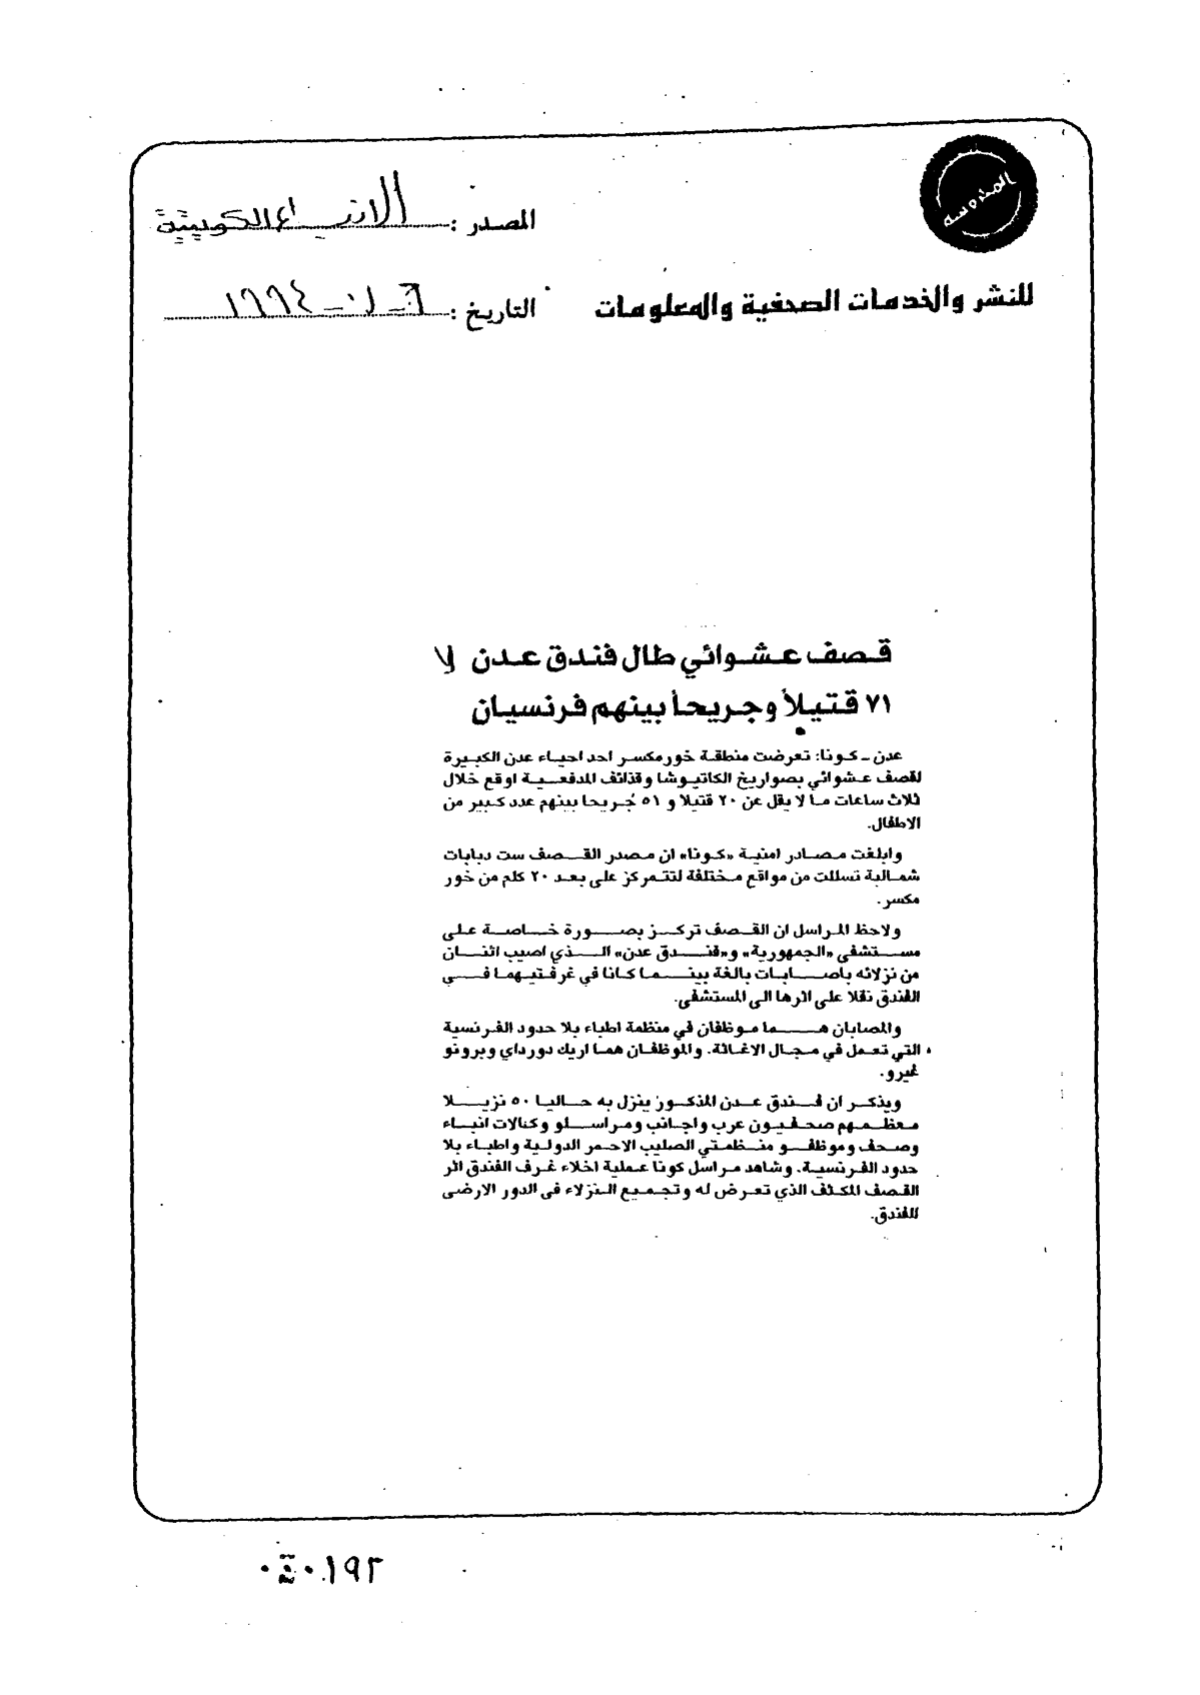 المحروسة
المصدر : الانباء الكويتية
للنشر والخدمات الصحفية والمعلومات
التاريخ : ١٩٩٤
قصف عشوائي طال فندق عدن
٧١ قتيلاً وجريحاً بينهم فرنسيان
عدن ـ كونا: تعرضت منطقة خور مكسر احد احياء عدن الكبيرة
لقصف عشوائي بصواريخ الكاتيوشا وقذائف المدفعية اوقع خلال
ثلاث ساعات ما لا يقل عن ٢٠ قتيلا و ٥١ جريحا بينهم عدد كبير من
الاطفال.
وابلغت مصادر امنية «كونا» ان مصدر القصف ست دبابات
شمالية تسللت من مواقع مختلفة لتتمركز على بعد ٢٠ كلم من خور
مكسر.
ولاحظ المراسل ان القصف تركز بصورة خاصة على
مستشفى «الجمهورية» و«فندق عدن» الذي اصيب اثنان
من نزلائه باصابات بالغة بينما كانا في غرفتيهما في
الفندق نقلا على اثرها الى المستشفى.
والمصابان هما موظفان في منظمة اطباء بلا حدود الفرنسية
التي تعمل في مجال الاغاثة. والموظفان هما اريك دورداي وبرونو
غيرو.
ويذكر ان فندق عدن المذكور ينزل به حاليا ٥٠ نزيلا
معظمهم صحفيون عرب واجانب ومراسلو وكالات انباء
وصحف وموظفو منظمتي الصليب الاحمر الدولية واطباء بلا
حدود الفرنسية. وشاهد مراسل كونا عملية اخلاء غرف الفندق اثر
القصف المكثف الذي تعرض له وتجميع النزلاء في الدور الارضي
للفندق.